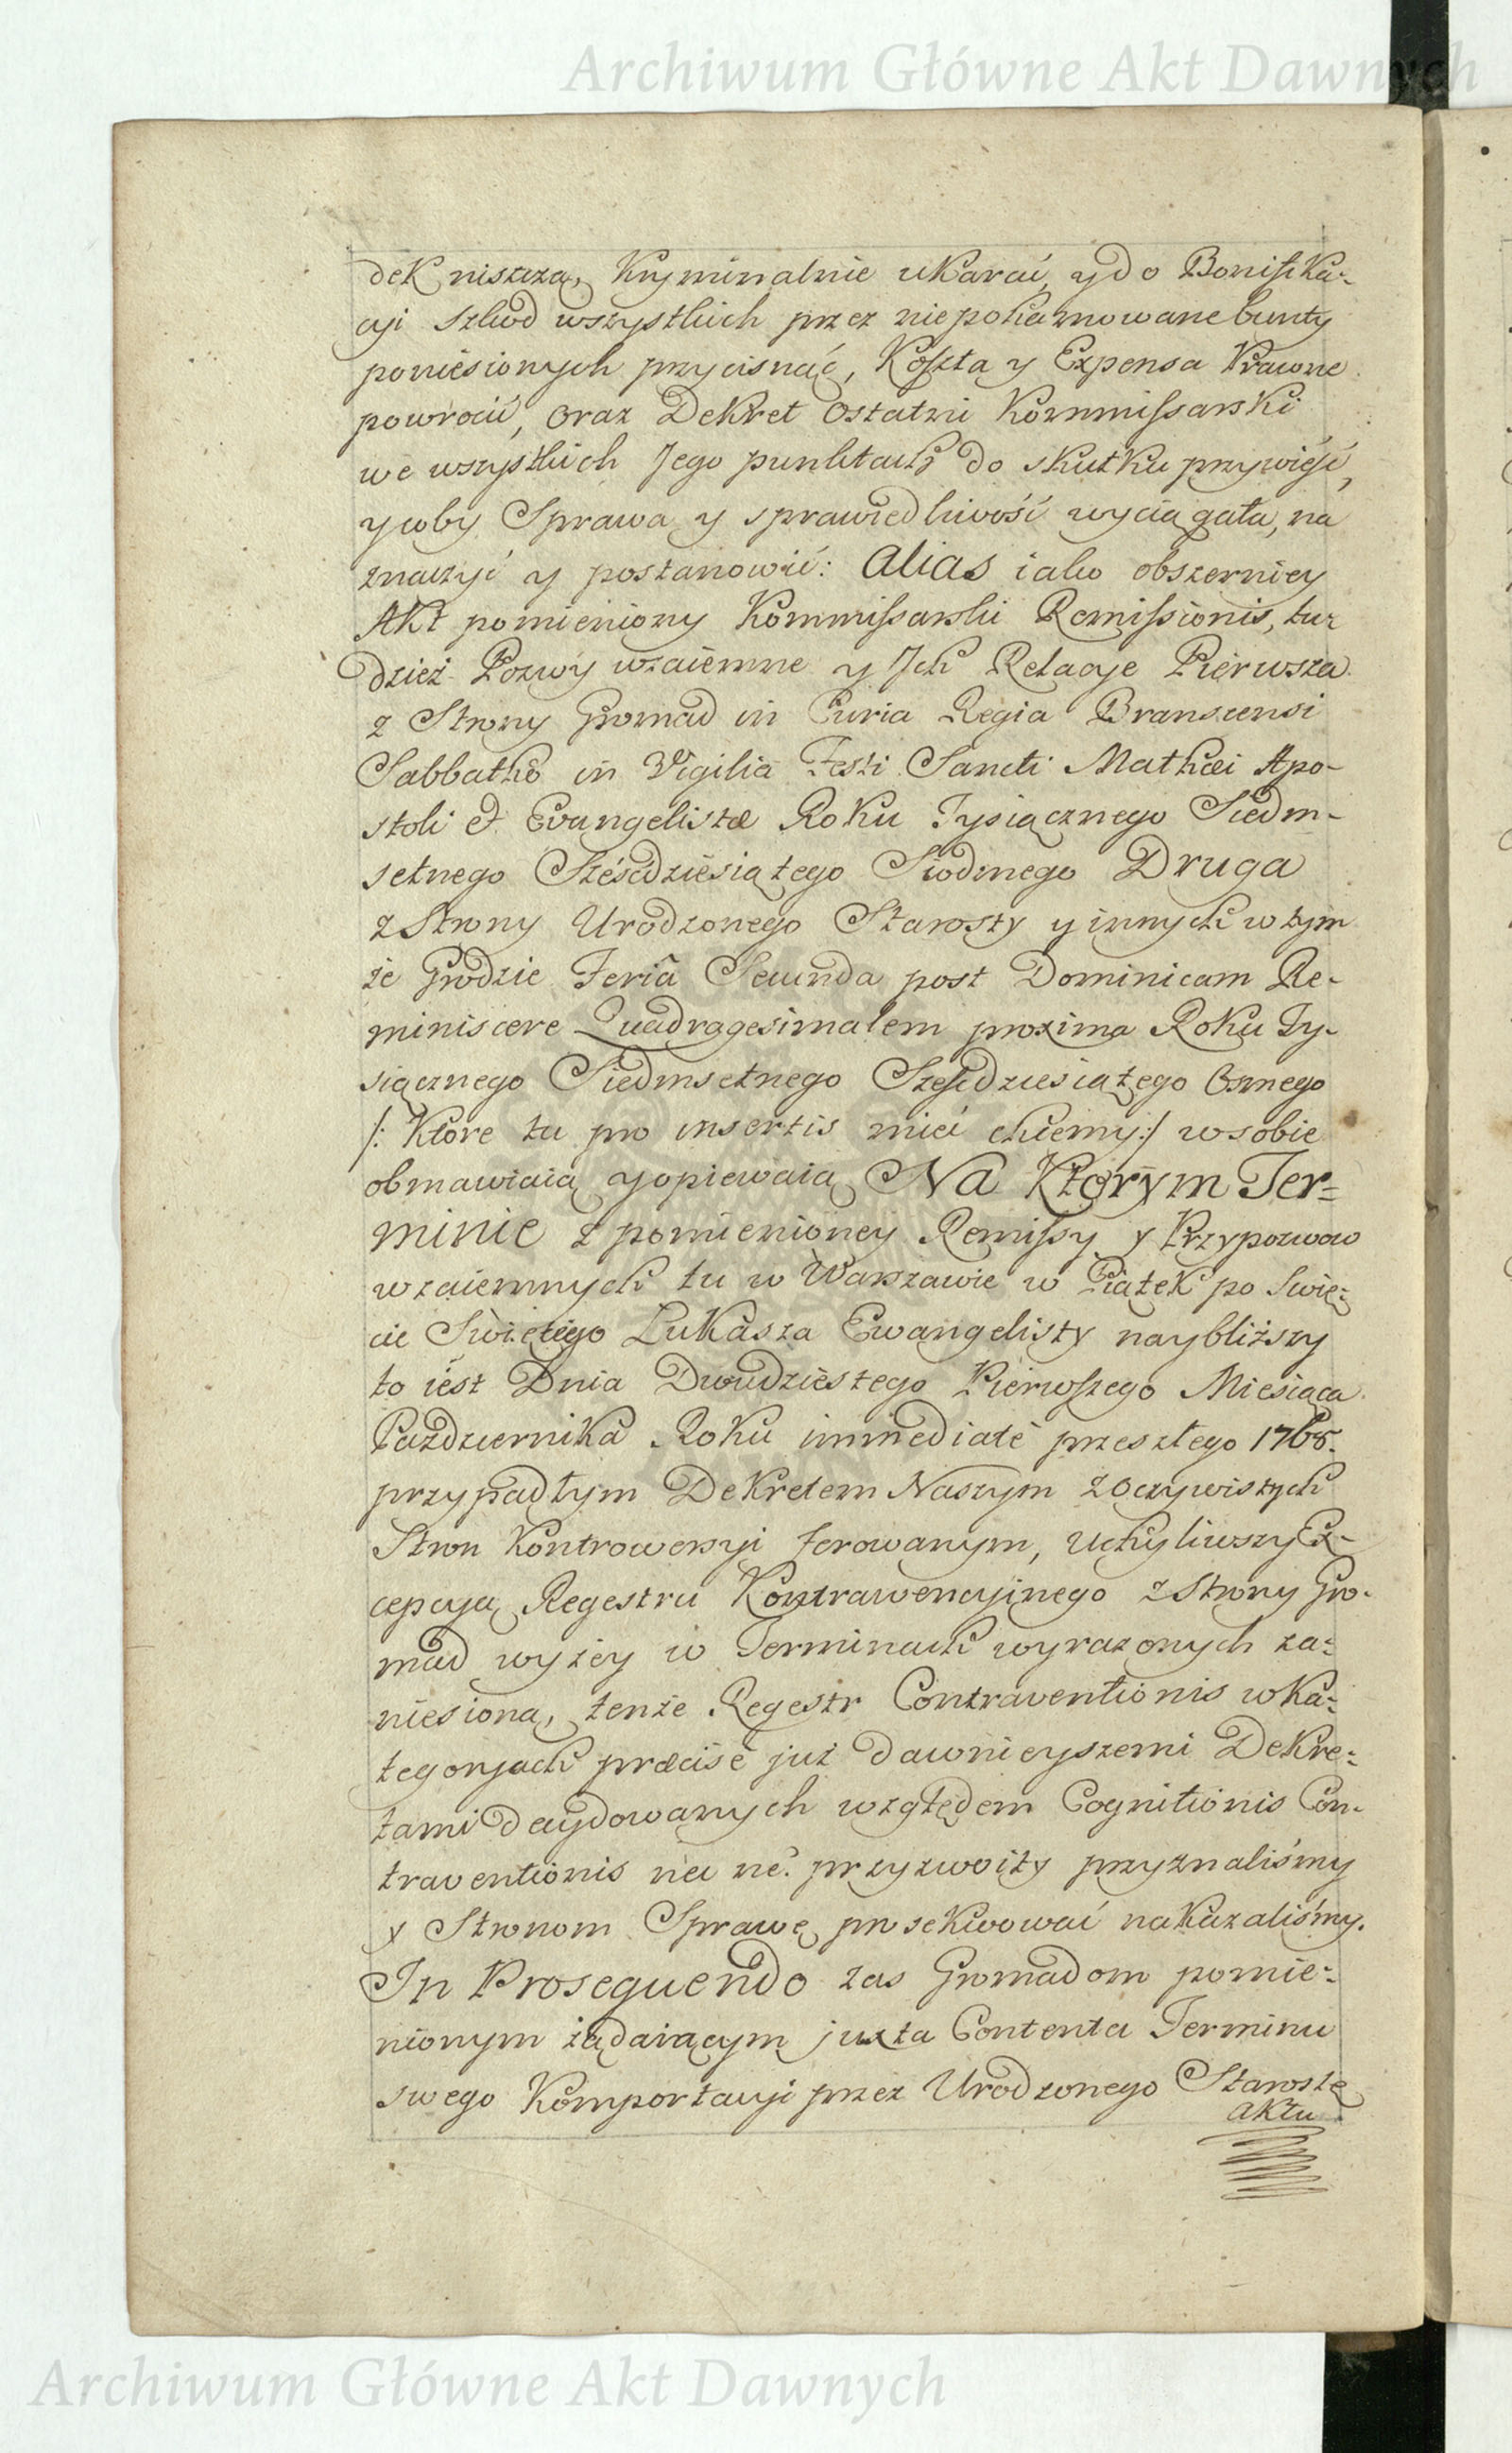 Archiwum Główne Akt Dawnych
dek niszczą, Kryminalnie ukarać, y do Bonifika-
cyi Szkod wszystkich przez niepohamowane bunty
poniesionych przycisnąć, Koszta y Expensa Prawne
powrocić, oraz Dekret Ostatni Kommissarski
we wszystkich Jego punktach do skutku przywieść,
y coby Sprawa y sprawiedliwość wyciągała, na
znaczyć y postanowić: Alias iako obszerniey
Akt pomieniony Kommissarski Remissionis, tu
dzież Pozwy wzaiemne y Jch Relacye Pierwsza
z Strony Gromad in Curia Regia Branscensi
Sabbatho in Vigilia Festi Sancti Mathæi Apo-
stoli et Evangelistæ Roku Tysiącznego Siedm-
setnego Sześćdziesiątego Siodmego Druga
z Strony Urodzonego Starosty y innych w tym
że Grodzie Feria Secunda post Dominicam Re-
miniscere Quadragesimalem proxima Roku Ty-
siącznego Siedmsetnego Sześćdziesiątego Osmego
/: Ktore tu pro insertis mieć chcemy:/ w sobie
obmawiaią y opiewaią Na Ktorym Ter=
minie z pomienioney Remissy y Przypozwow
wzaiemnych tu w Warszawie w Piątek po Swię-
cie Swiętego Łukasza Ewangelisty naybliższy
to iest Dnia Dwudziestego Pierwszego Miesiąca
Października Roku immediatè przeszłego 1768.
przypadłym Dekretem Naszym z oczywistych
Stron Kontrowersyi ferowanym, Uchyliwszy Ex-
cepcyą Regestru Kontrawencyinego z Strony Gro-
mad wyżey w Terminach wyrazonych za-
niesioną, tenże Regestr Contraventionis w Ka-
tegoryach præcisè już dawnieyszemi Dekre-
tami decydowanych względem Cognitionis Con-
traventionis przyzwoity przyznaliśmy
y Stronom Sprawę prosekwować nakazaliśmy.
In Prosequendo zas Gromadom pomie-
nionym żądaiącym juxta Contenta Terminu
swego Komportacyi przez Urodzonego Starostę
aktu
Archiwum Główne Akt Dawnych